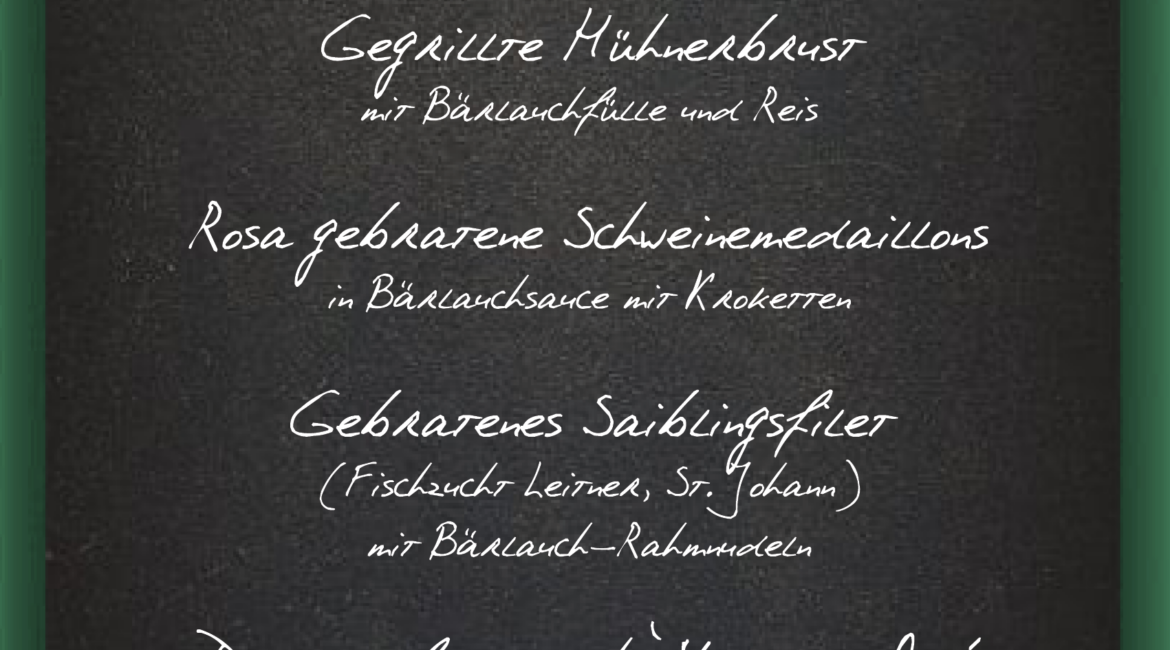 Gegrillte Hühnerbrust
mit Bärlauchfülle und Reis
Rosa gebratene Schweinemedaillons
in Bärlauchsauce mit Kroketten
Gebratenes Saiblingsfilet
(Fischzucht Leitner, St. Johann)
mit Bärlauch-Rahmnudeln